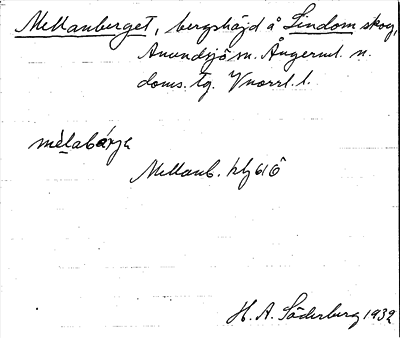 Mellanberget, bergshöjd å Lindom skog,
Anundsjö sn. Ångerml. n.
doms. tg. Vnorrl. l.
mèlabárja
Mellanb. kbl 61ö
H. A. Söderberg 1932